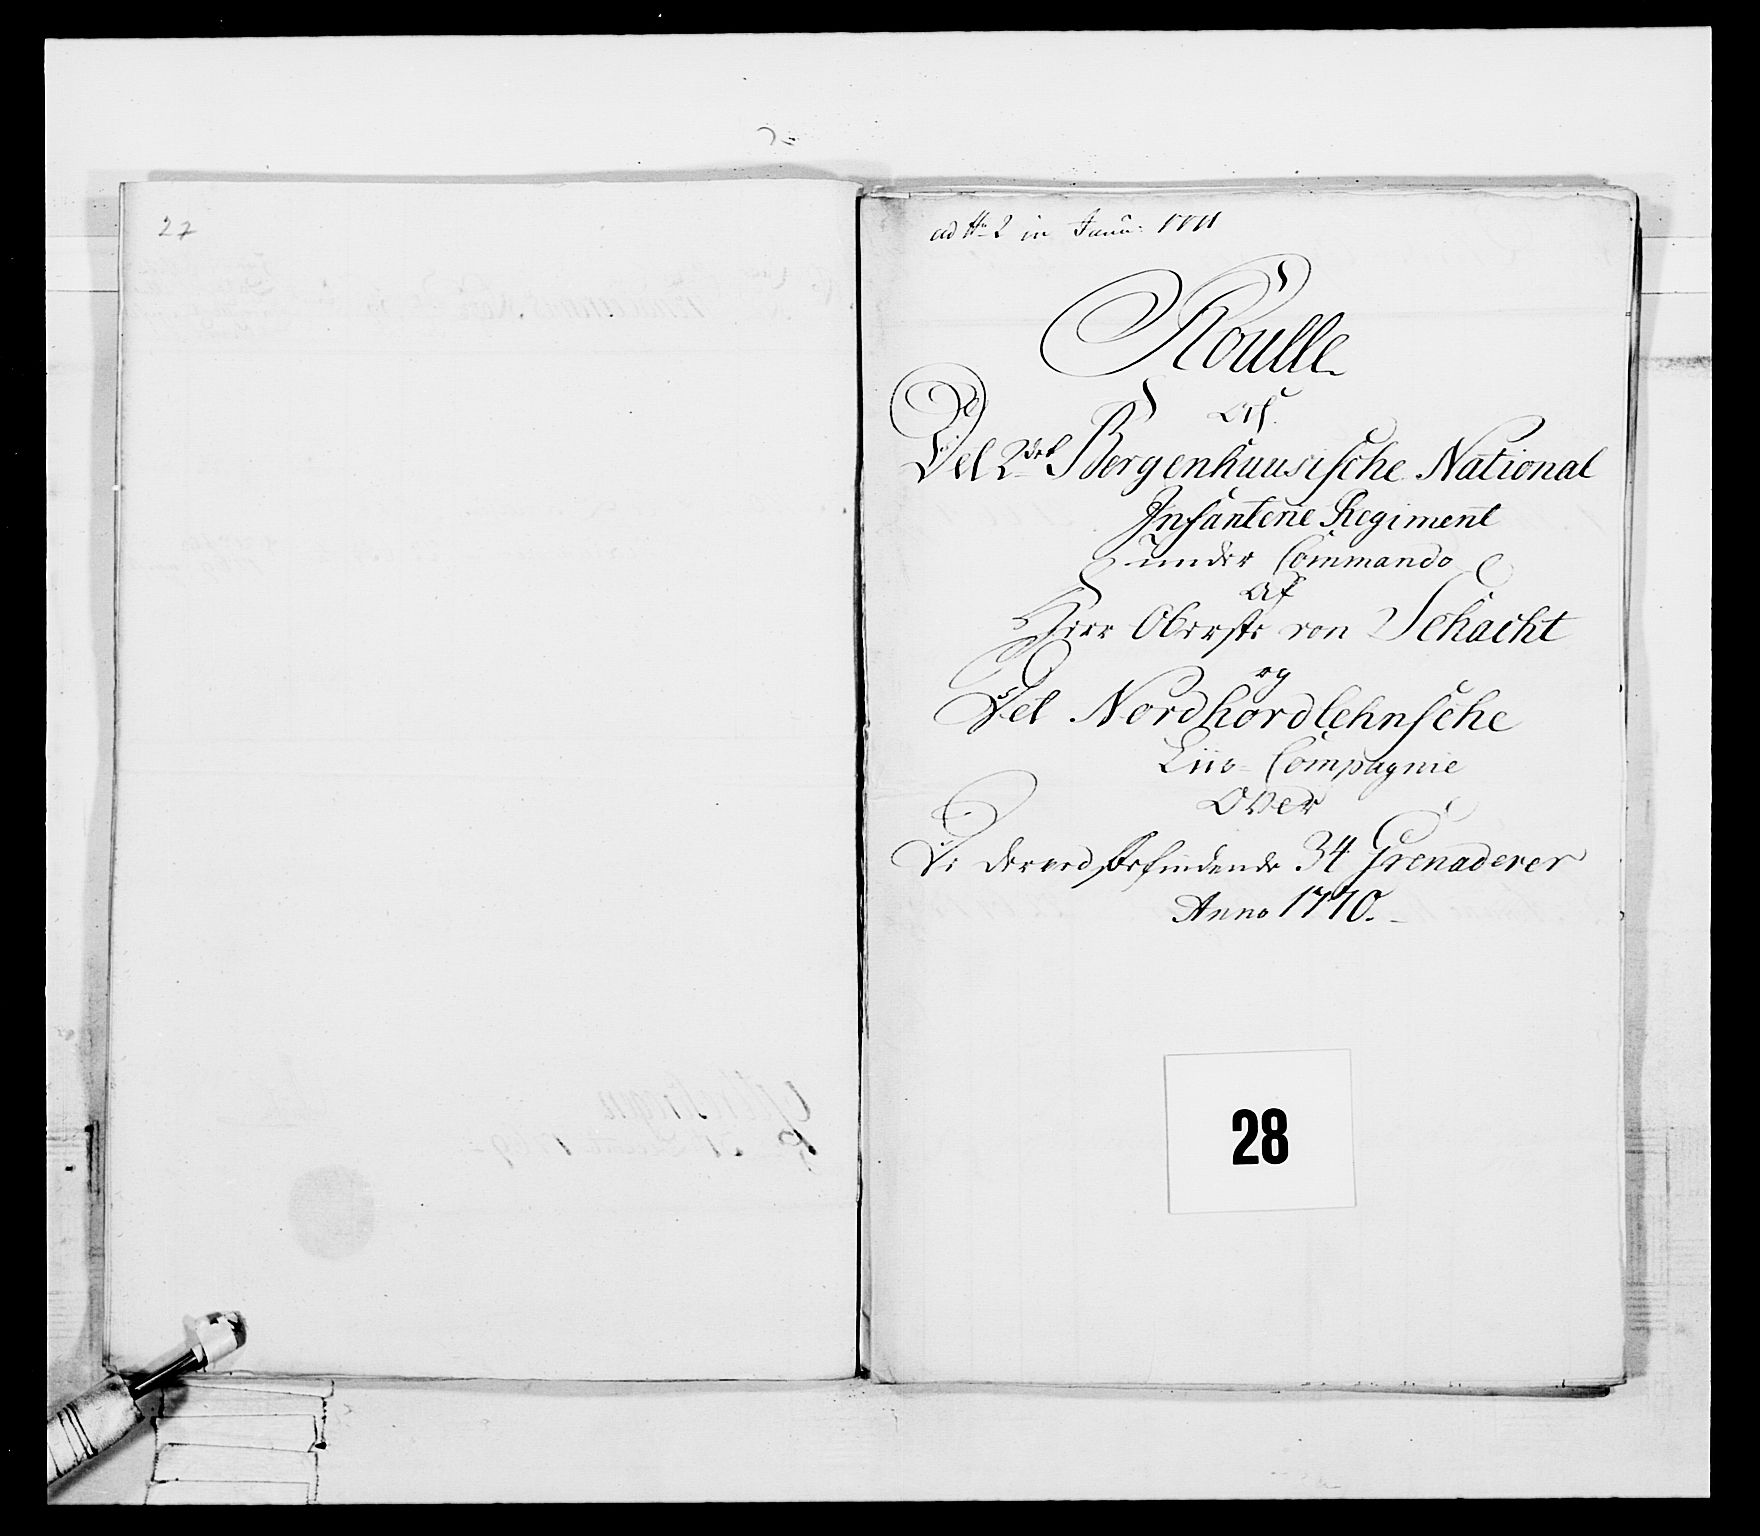 27
ad No 2 in Janu: 1771
Roulle
Af
Det 2det Bergenhuusische National
Infanterie Regiment
under Commando
af
Herr Oberste von Schacht
og
Det Nordhordlehnsche
Liv-Compagnie
Over
De derved befindende 34 Grenaderer
Anno 1770.
28